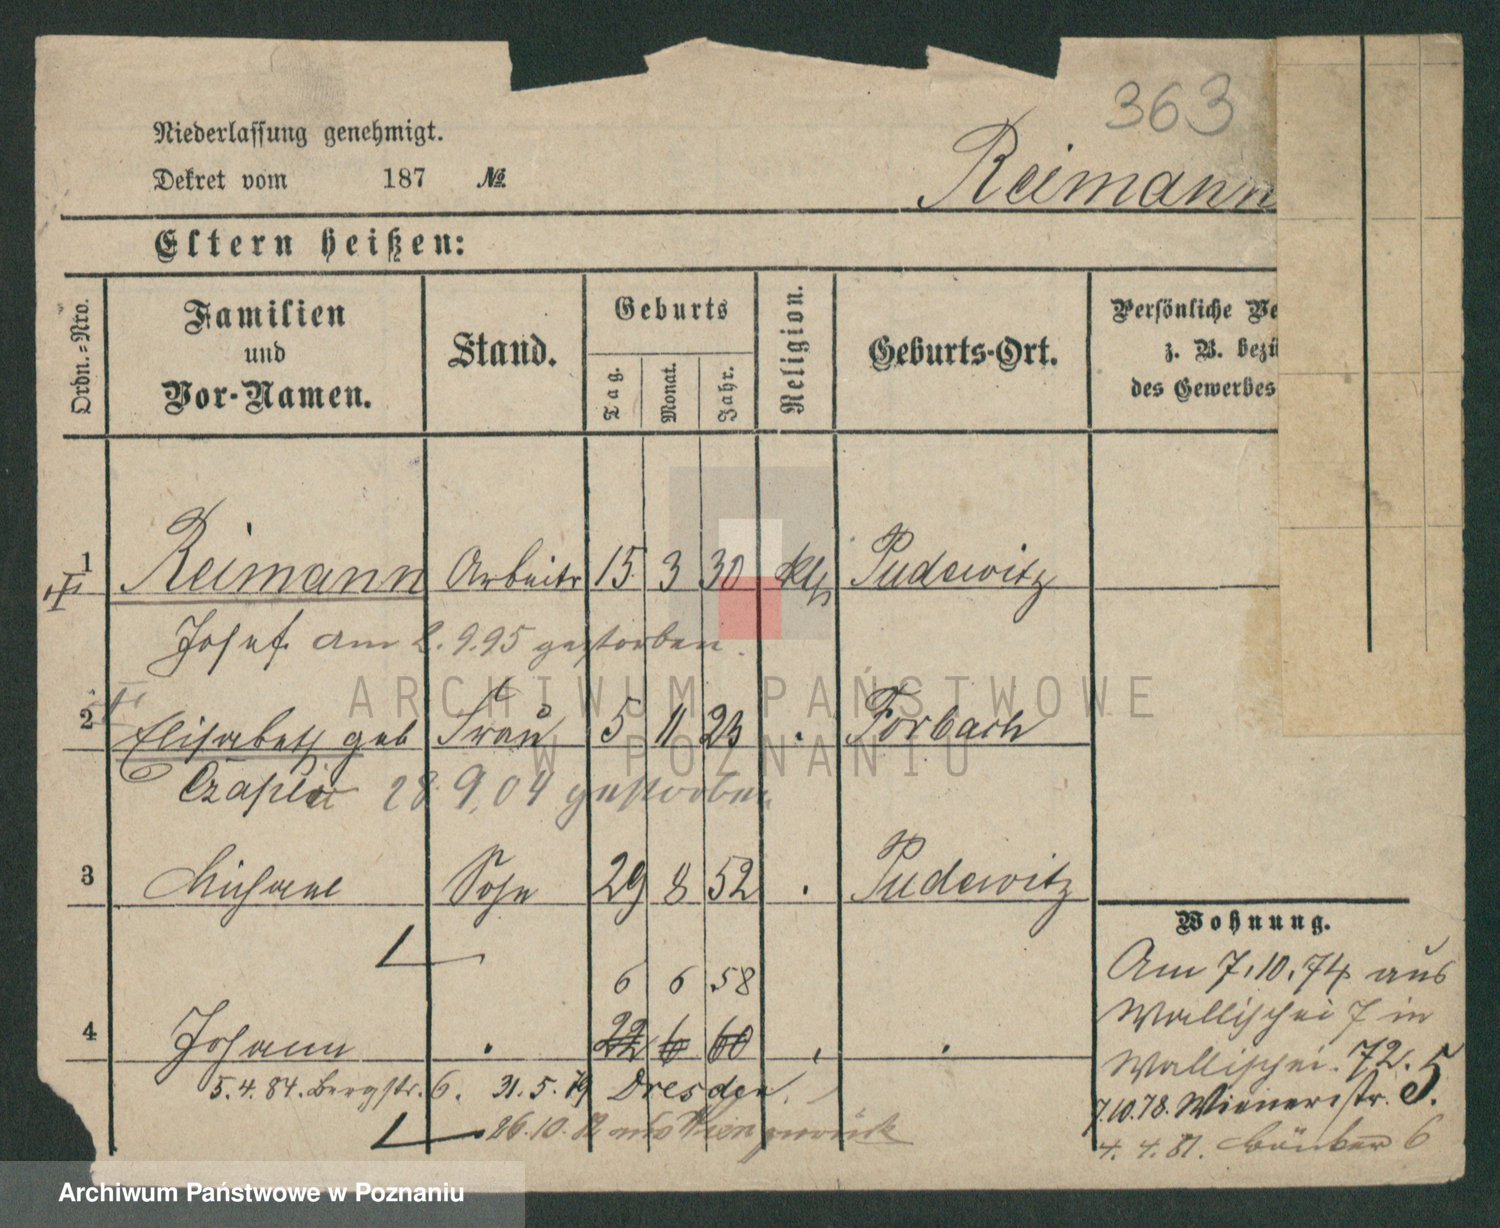 363
Niederlassung genehmigt.
Dekret vom 187 №
Reimann
Eltern heißen:
Ordn.=Nro.
Familien und Vor-Namen.
Stand.
Geburts
Tag.
Monat.
Jahr.
Religion.
Geburts-Ort.
Persönliche Ve
z. B. bezü
des Gewerbes
1 Reimann Arbeitr 15 3 30 kth Pudewitz
Josef. am 2.9.95 gestorben.
2 Elisabeth geb Frau 5 11 23 . Forbach
28.9.04 gestorben
3 Michael Sohn 29 8 52 . Pudewitz
6 6 58
4 Johann . 22 6 60
5.4.84. Bergstr. 6. 31.5.79 Dresden.
26.10.82 aus Wien zurück
Wohnung.
Am 7.10.74 aus
Wallischei 7 in
Wallischei. 72.
7.10.78. Wienerstr. 5.
4.4.81. 6
ARCHIWUM PAŃSTWOWE
W POZNANIU
Archiwum Państwowe w Poznaniu